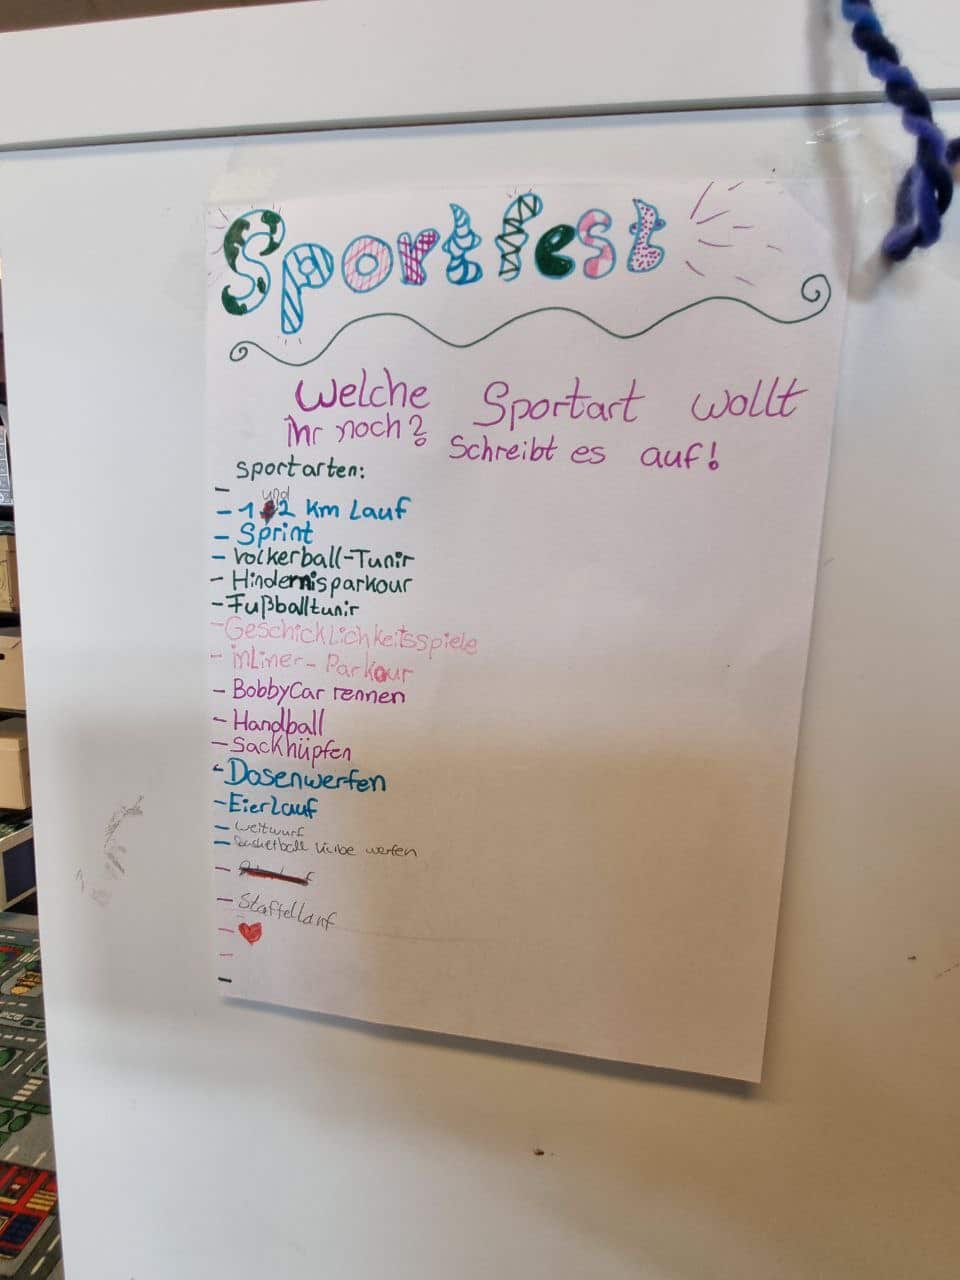 Sportfest
Welche Sportart wollt
ihr noch? Schreibt es auf!
Sportarten:
-
- 1 und 2 km Lauf
- Sprint
- Volkerball-Tunir
- Hindernisparkour
- Fußballtunir
- Geschicklichkeitsspiele
- inliner-Parkour
- BobbyCar rennen
- Handball
- Sackhüpfen
- Dosenwerfen
- Eierlauf
- Weitwurf
- Basketball werfen
-
- Staffellauf
- ♥
-
-